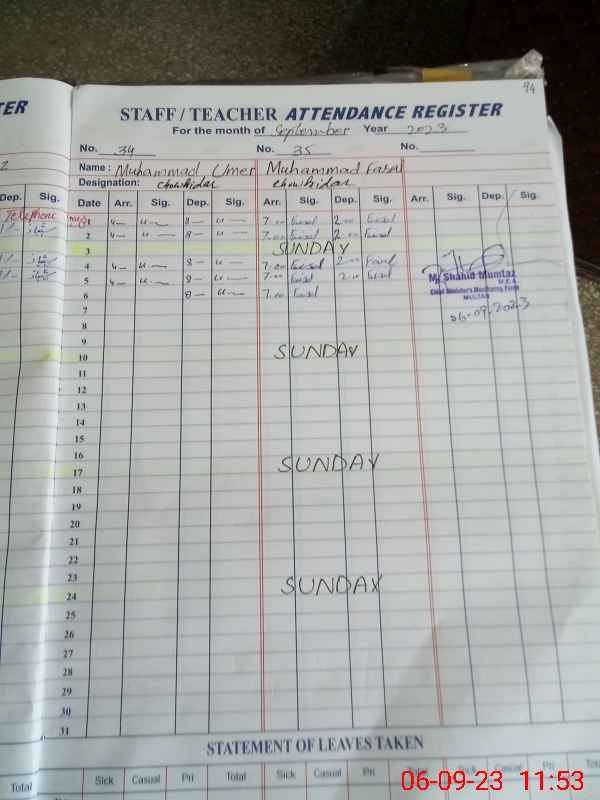 94
TER
STAFF / TEACHER ATTENDANCE REGISTER
For the month of September Year 2023
No. 34 No. 35 No.
Name : Muhammad Umer Muhammad Faisal
Designation: chowkidar chowkidar
Dep. Sig. Date Arr. Sig. Dep. Sig. Arr. Sig. Dep. Sig. Arr. Sig. Dep. Sig.
Telephone 1 4— u— 8— u— 7.00 Faisal 2.00 Faisal
2 4— u— 8— u— 7.00 Faisal 2.00 Faisal
3 SUNDAY
4 4— u— 8— u— 7.00 Faisal 2.00 Faisal
5 4— u— 8— u— 7.00 Faisal 2.00 Faisal
6 8— u— 7.00 Faisal
M. Shahid Mumtaz
M.E.A
Chief Minister's Monitoring Force
MULTAN
06-09-2023
7
8
9
10 SUNDAY
11
12
13
14
15
16
17 SUNDAY
18
19
20
21
22
23
24 SUNDAY
25
26
27
28
29
30
31
STATEMENT OF LEAVES TAKEN
Total Sick Casual Pri Total Sick Casual Pri Total Sick Casual Pri Total
Total
06-09-23 11:53